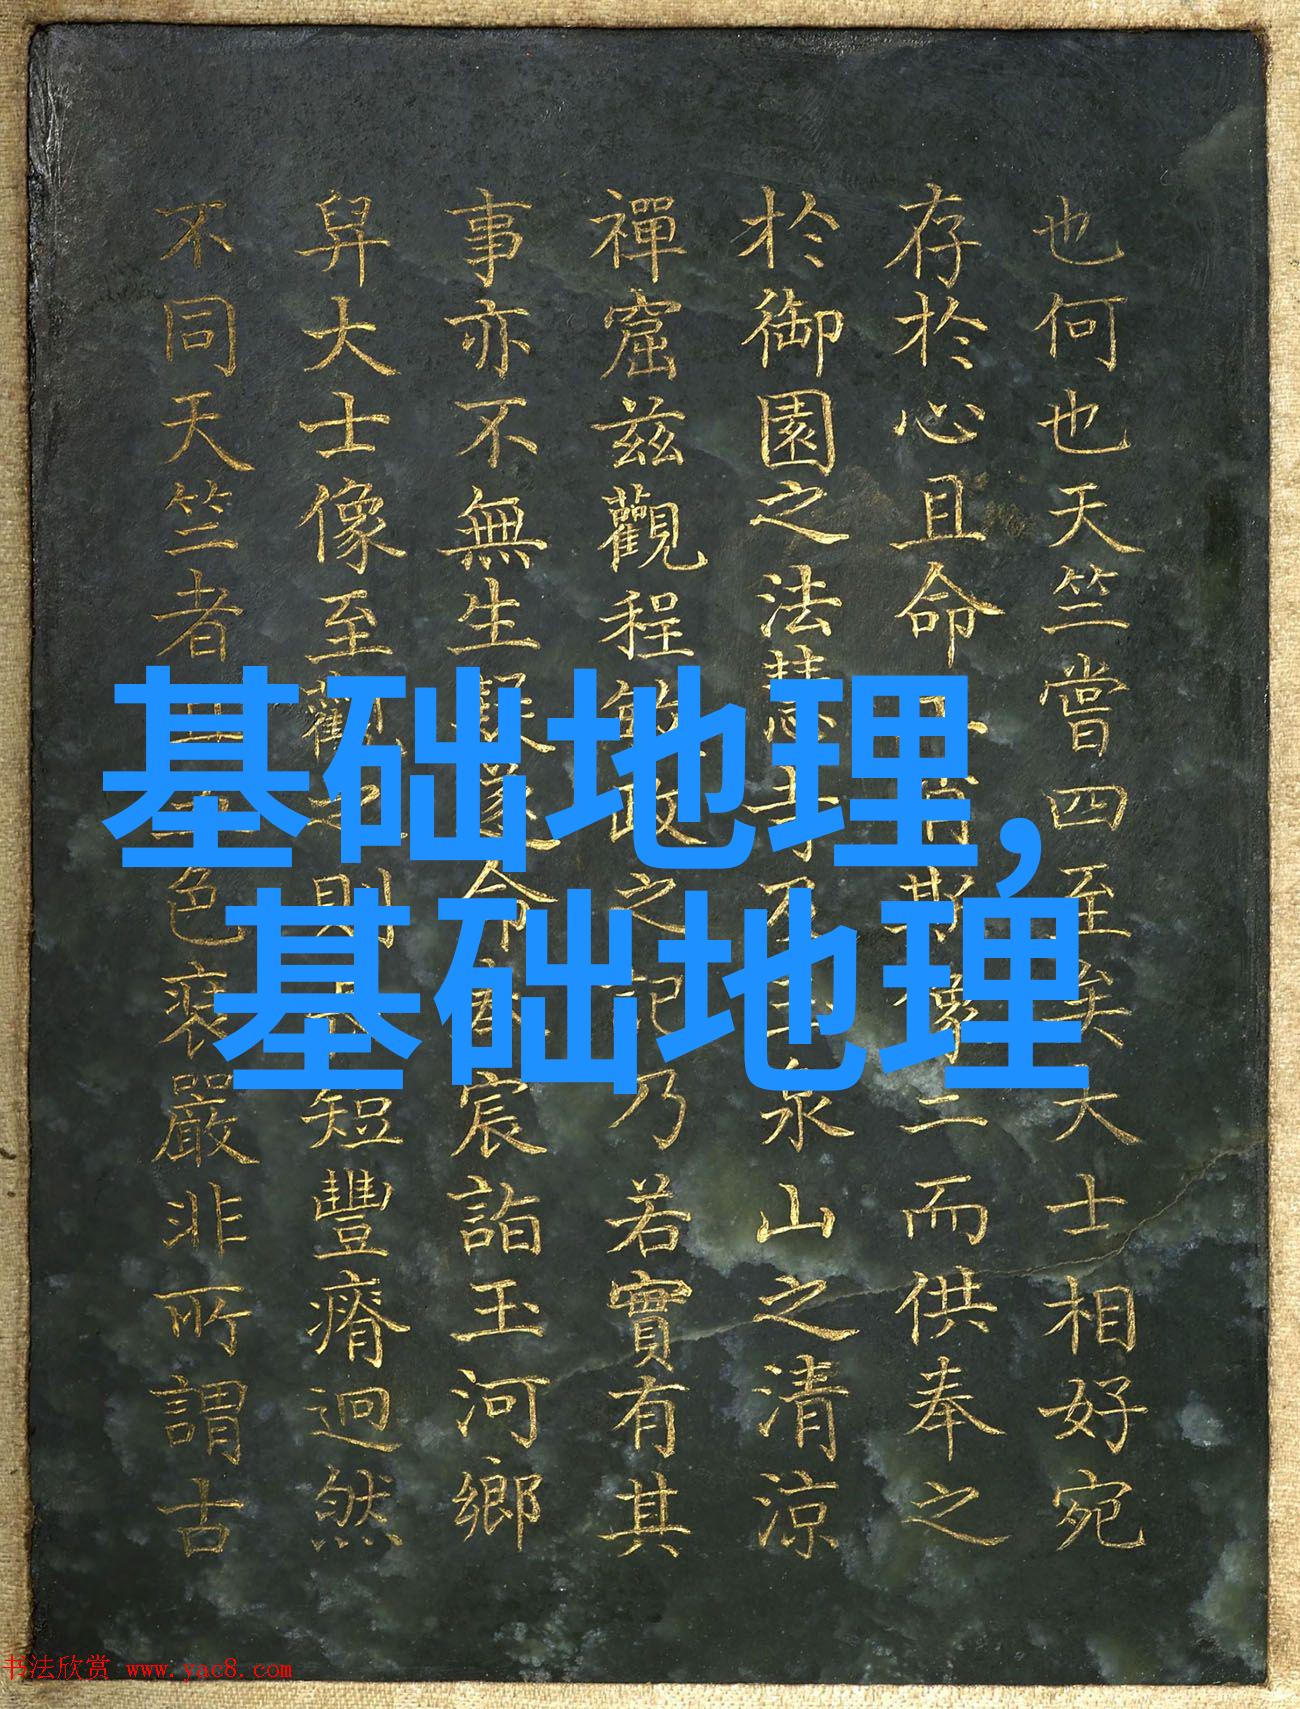 基础地理,
基础地理
也何也天竺嘗四至矣大士相好宛
存於心且命肖斯像而供奉之
於御園之法慧寺不泉山之清涼
禪窟兹觀程政之記乃若實有其
事亦不無生疑遂命宸詣玉河鄉
舁大士像至觀之則短豐瘠迥然
不同天竺者色嚴非所謂古
书法欣赏 www.yac8.com